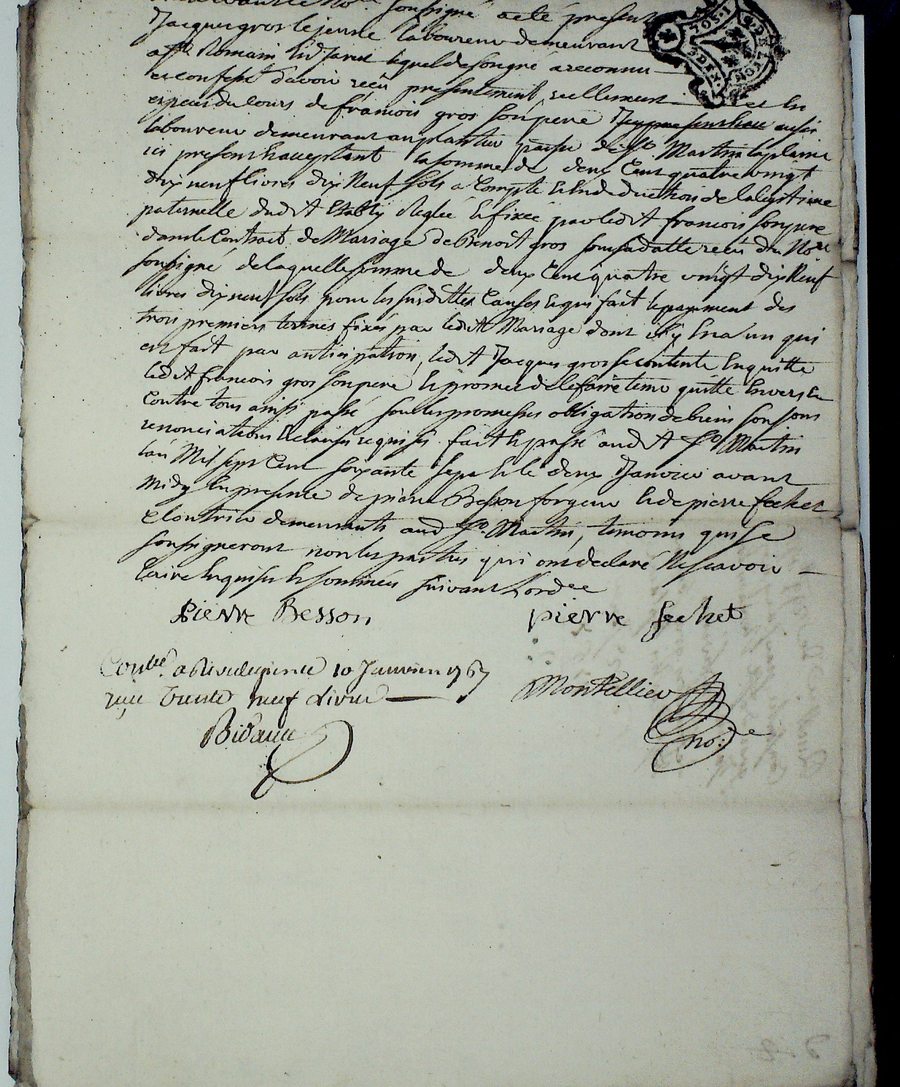 soussigné a eté present
Jacques gros le jeune laboureur demeurant
a St Romain En Jarest lequel de son gré a reconnu
et confessé davoir reçu presentement reellement et En
especes du cours de francois gros son pere aussi
laboureur demeurant au plantier parsse de St Martin la plaine
ici present & acceptant la somme de deux Cent quatre vingt
dix neuf livres dix Neuf sols a Compte & En deduction de la legitime
paternelle dudit Etablie Reglée & fixée par ledit francois son pere
dans le Contrat de Mariage de Benoit gros sous sa datte reçu du Nore
soussigné de laquelle somme de deux Cent quatre vingt dix Neuf
livres dix neuf sols pour les susdittes Causes & qui fait le payement des
trois premiers termes fixés par ledit Mariage dont il y En a un qui
est fait par anticipation, ledit Jacques gros se contente En quitte
ledit francois gros son pere & promet de le faire tenir quitte Envers &
Contre tous ainsi passé sous les promesses obligation de biens
renonciations & clauses requises fait & passé audit St Martin
lan Mil sept Cent soixante sept & le deux Janvier avant
midy En presence de pierre Besson forgeur & de pierre fechet
Cloutrier demeurants aud St Martin, temoins qui se
soussigneront non les parties qui ont declaré Ne scavoir
faire Enquises & sommées suivant Lordce
pierre Besson pierre fechet
Conlé. a Rivedegier le 10 Janvier 1767
reçu Trente neuf Livres
Montellier
nore